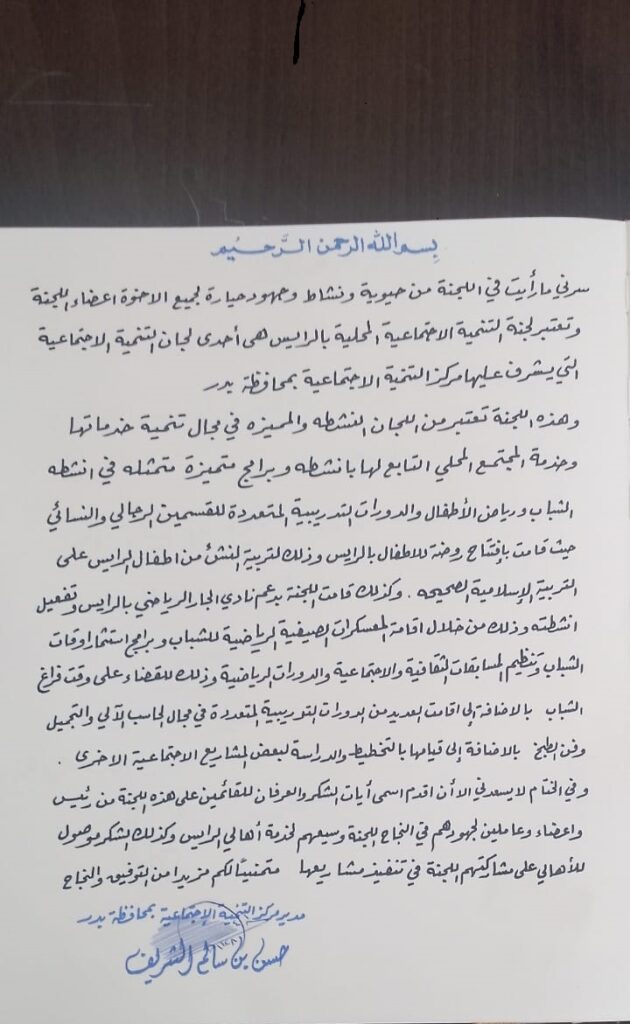 بسم الله الرحمن الرحيم
سرني ما رأيت في اللجنة من حيوية ونشاط وجهود جبارة لجميع الاخوة اعضاء اللجنة
وتعتبر لجنة التنمية الاجتماعية المحلية بالرايس هى أحدى لجان التنمية الاجتماعية
التي يشرف عليها مركز التنمية الاجتماعية بمحافظة بدر
وهذه اللجنة تعتبر من اللجان النشطه والمميزه في مجال تنمية خدماتها
وخدمة المجتمع المحلي التابع لها بانشطه وبرامج متميزة متمثله في انشطه
الشباب ورياض الأطفال والدورات التدريبية المتعددة للقسمين الرجالي والنسائي
حيث قامت بإفتتاح روضة للاطفال بالرايس وذلك لتربية النشئ من اطفال الرايس على
التربية الإسلامية الصحيحه . وكذلك قامت اللجنة بدعم نادي الجار الرياضي بالرايس وتفعيل
انشطته وذلك من خلال اقامة المعسكرات الصيفية الرياضية للشباب وبرامج استثمار اوقات
الشباب وتنظيم المسابقات الثقافية والاجتماعية والدورات الرياضية وذلك للقضاء على وقت فراغ
الشباب بالاضافة إلى اقامت العديد من الدورات التدريبية المتعددة في مجال الحاسب الآلي والتجميل
وفن الطبخ بالاضافة إلى قيامها بالتخطيط والدراسة لبعض المشاريع الاجتماعية الاخرى .
وفي الختام لا يسعدني الا أن اقدم اسمى أيات الشكر والعرفان للقائمين على هذه اللجنة من رئيس
واعضاء وعاملين لجهودهم في النجاح اللجنة وسيعهم لخدمة أهالي الرايس وكذلك الشكر موصول
للأهالي على مشاركتهم اللجنة في تنفيذ مشاريعها متمنياً لكم مزيدا من التوفيق والنجاح
مدير مركز التنمية الإجتماعية بمحافظة بدر
حسن بن سالم الشريف